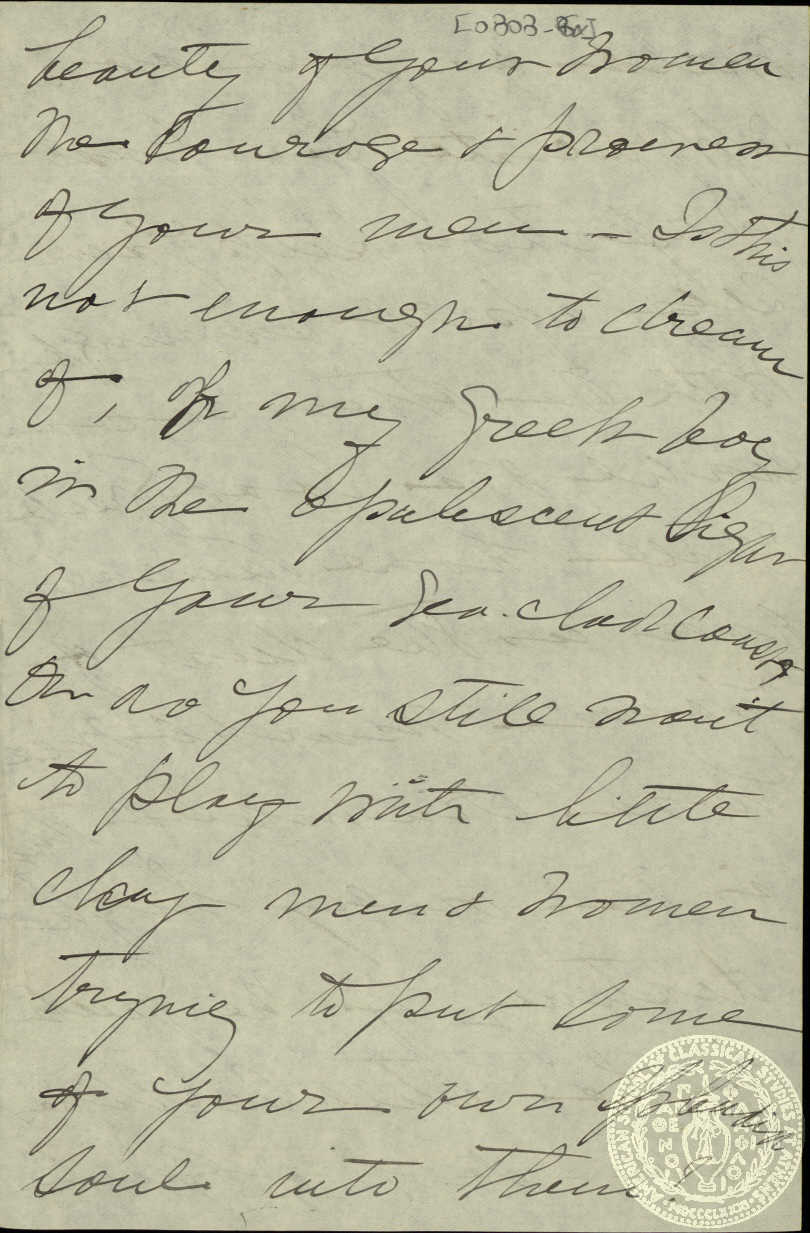 [0303-
beauty of your women
the courage & prowess
of your men – Is this
not enough to dream
of, of my Greek boy
in the opalescent light
of your sea-clad coast,
Or do you still want
to play with little
clay men & women
trying to put some
of your own
soul into them!
AMERICAN SCHOOL OF CLASSICAL STUDIES AT ATHENS
MDCCCLXXXI